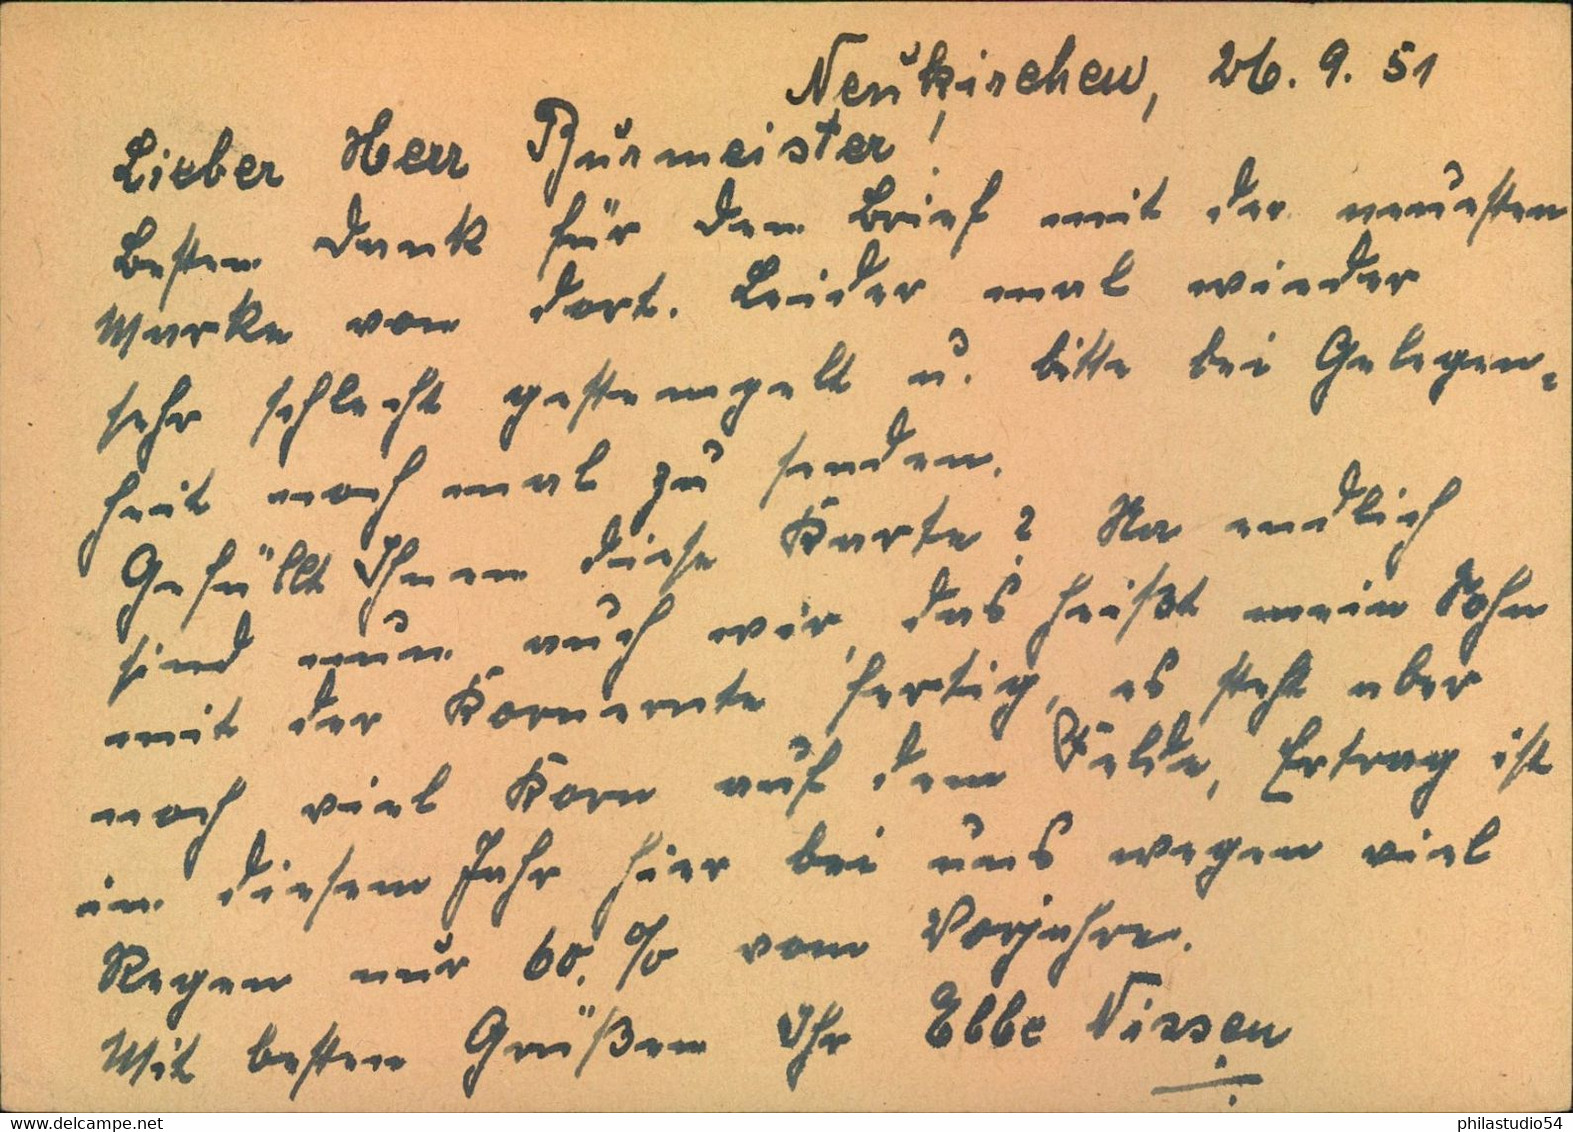 Neukirchen, 26.9.51
Lieber Herr Burmeister!
Besten Dank für den Brief mit der neuesten
Marke von dort. Leider mal wieder
sehr schlecht gestempelt u. bitte bei Gelegen-
heit noch mal zu senden.
Gefällt Ihnen diese Karte? Na endlich
sind nun auch wir, das heißt mein Sohn
mit der Kornernte fertig, es steht aber
noch viel Korn auf dem Felde, Ertrag ist
in diesem Jahr hier bei uns wegen viel
Regen nur 60.% vom Vorjahre.
Mit besten Grüßen Ihr Ebbe Nissen
www.delcampe.net
philastudio54